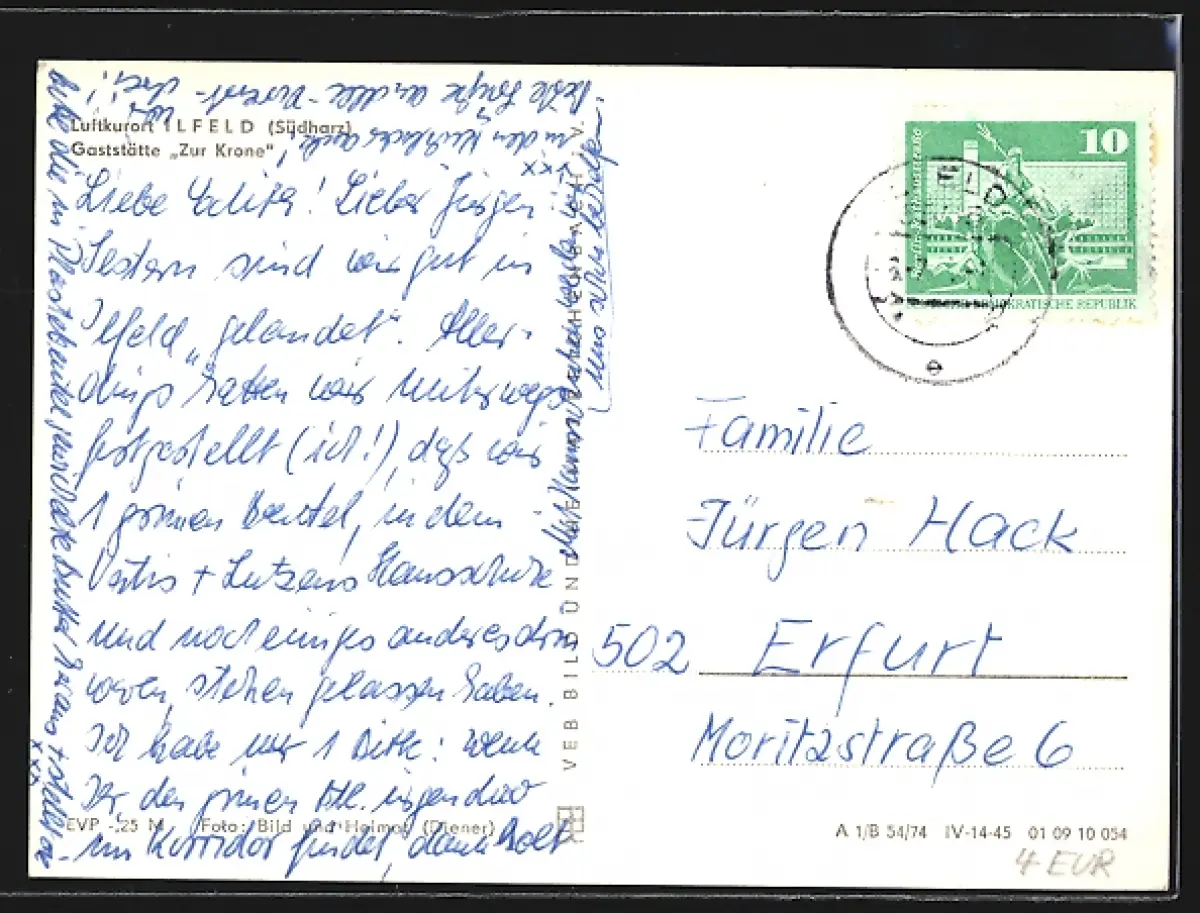 Luftkurort ILFELD (Südharz)
Gaststätte „Zur Krone"
Liebe Editha! Lieber Jürgen!
Gestern sind wir gut in
Ilfeld „gelandet". Aller-
dings hatten wir unterwegs
festgestellt (ich!), daß wir
1 grünen Beutel, in dem
Vatis + Lutzens Hausschuhe
und noch einiges anderes drin
waren, stehen gelassen haben.
Ich habe nur 1 Bitte: wenn
Ihr den grünen Btl. irgendwo
im Korridor findet, dann holt
bitte die in Plastebeutel
xxx
in den Kühlschrank!
xxx
uns
VEB BILD UND HEIMAT REICHENBACH i. V.
EVP -,25 M Foto: Bild und Heimat (Diener)
10
Berlin, Rathausstraße
DEUTSCHE DEMOKRATISCHE REPUBLIK
Familie
Jürgen Hack
502 Erfurt
Moritzstraße 6
A 1/B 54/74 IV-14-45 01 09 10 054
4 EUR